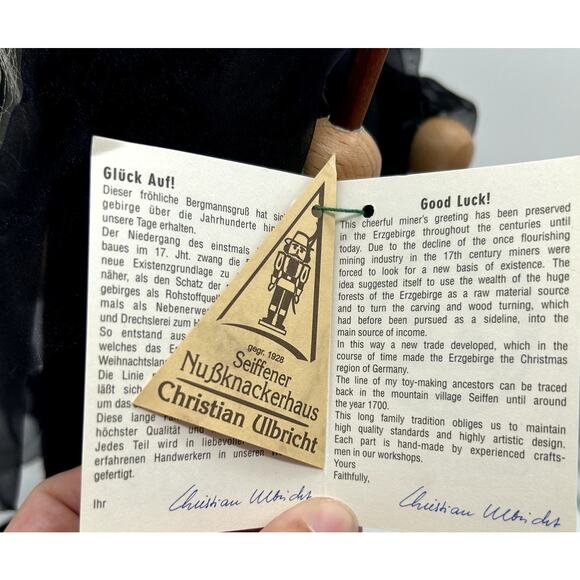 Glück Auf!
Dieser fröhliche Bergmannsgruß hat
gebirge über die Jahrhunderte
unsere Tage erhalten.
Der Niedergang des einstmals
baues im 17. Jht. zwang die
neue Existenzgrundlage zu
näher, als den Schatz der
gebirges als Rohstoffquell
mals als Nebenerwerb
und Drechslerei zum
So entstand aus
welches das
Weihnachtsland
Die Linie
läßt sich
um das
Diese lange
höchster Qualität und
Jedes Teil wird in liebevoller
erfahrenen Handwerkern in unseren
gefertigt.
Ihr
Christian Ulbricht
gegr. 1928
Seiffener
Nußknackerhaus
Christian Ulbricht
Good Luck!
This cheerful miner's greeting has been preserved
in the Erzgebirge throughout the centuries until
today. Due to the decline of the once flourishing
mining industry in the 17th century miners were
forced to look for a new basis of existence. The
idea suggested itself to use the wealth of the huge
forests of the Erzgebirge as a raw material source
and to turn the carving and wood turning, which
had before been pursued as a sideline, into the
main source of income.
In this way a new trade developed, which in the
course of time made the Erzgebirge the Christmas
region of Germany.
The line of my toy-making ancestors can be traced
back in the mountain village Seiffen until around
the year 1700.
This long family tradition obliges us to maintain
high quality standards and highly artistic design.
Each part is hand-made by experienced crafts-
men in our workshops.
Yours
Faithfully,
Christian Ulbricht